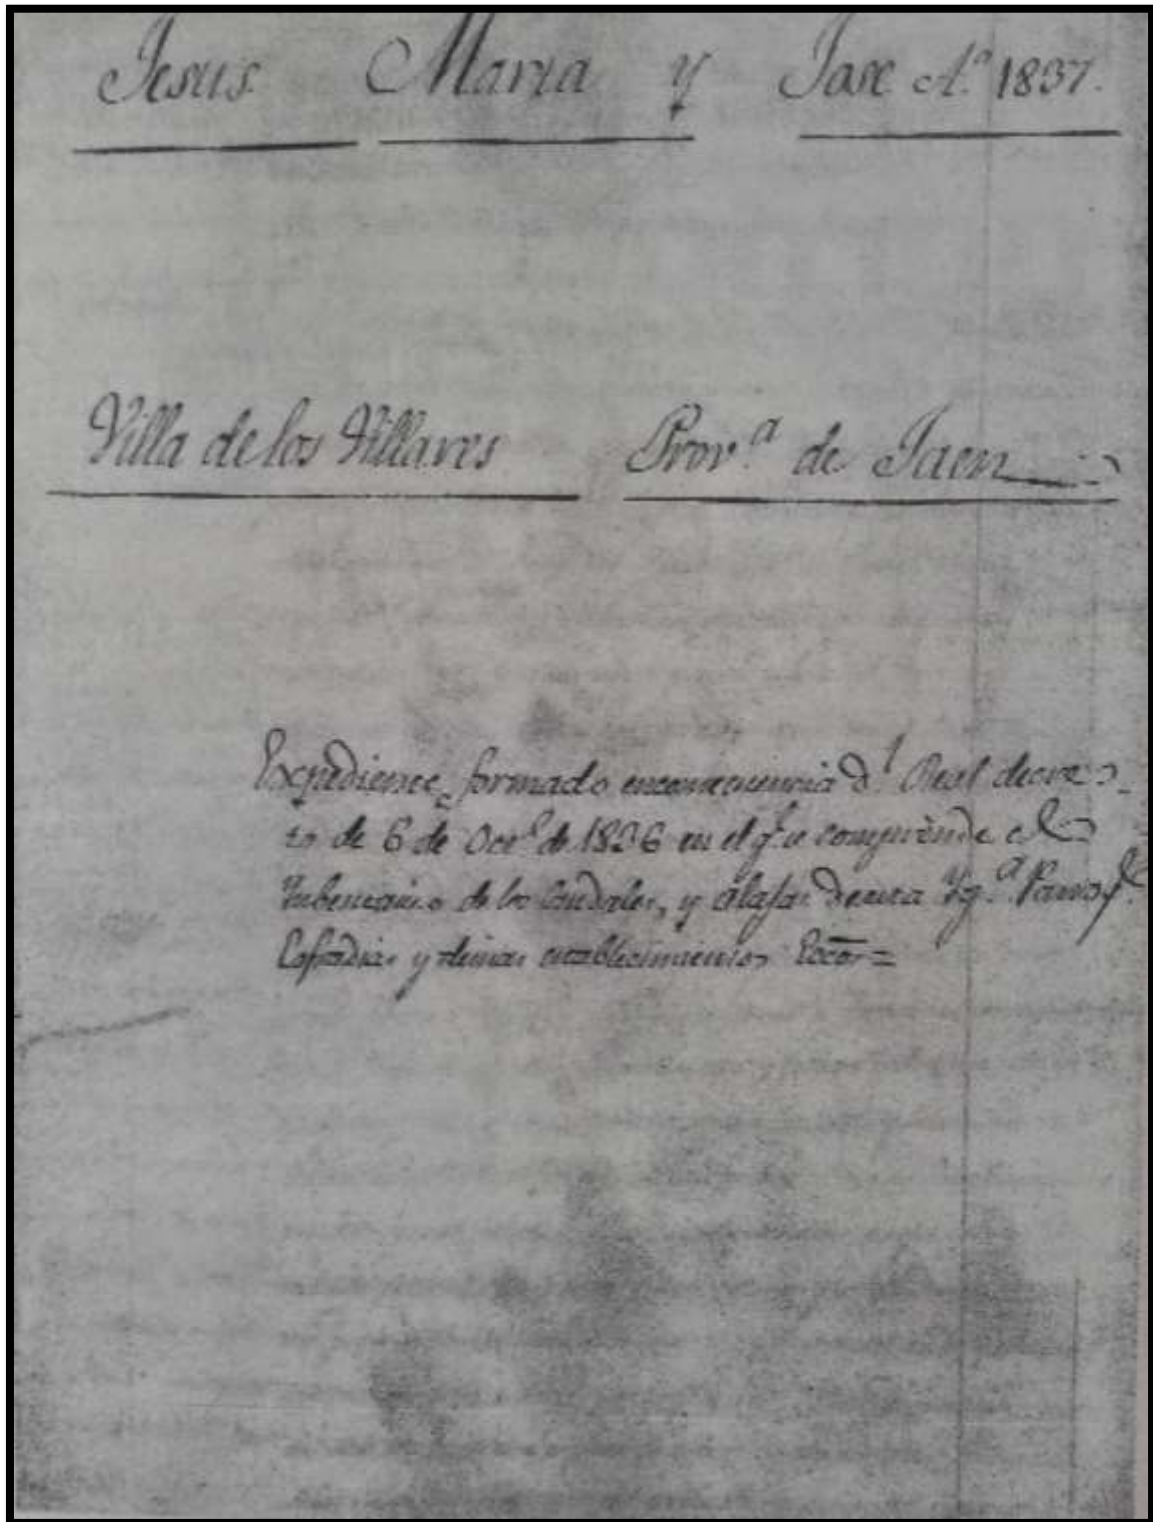 Jesus Maria y Jose A.º 1837.
Villa de los Villares Prov.ª de Jaen
Expediente formado enconsecuencia d.l Real decre-
to de 6 de Oct.e de 1836 en el q.e se comprende el
Ynbentario de los Caudales, y alajas de esta Yg.ª Parroq.l
Cofradias y demas establecimientos